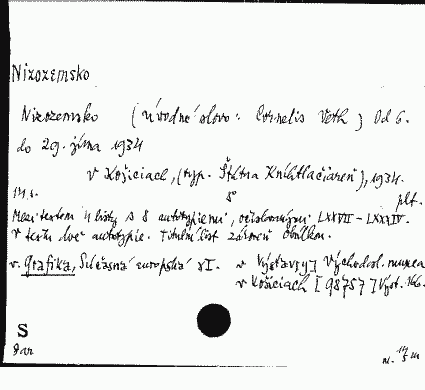 Nizozemsko
Nizozemsko (Úvodné slovo: Cornelis Veth) Od 6.
do 29. júna 1934
v Košiciach, (typ. Štátna Kníhtlačiareň), 1934.
8° plt.
Mezi textom 4 listy s 8 autotypiemi, očíslovanými LXXVII-LXXXIV.
V textu dve autotypie. Titulní list zároveň obálkou.
v. Grafika, Súčasná europská XI. v Výstavy] Východosl. muzea
v Košiciach [98757] Výst. 166.
S
dar